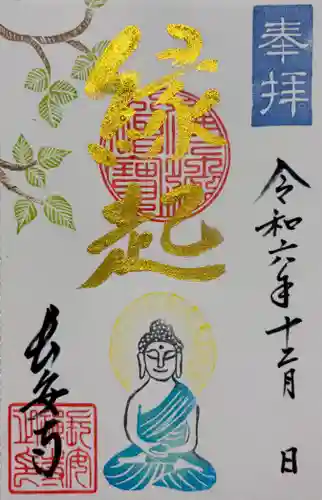 奉拝
令和六年十二月 日
縁起
長安寺